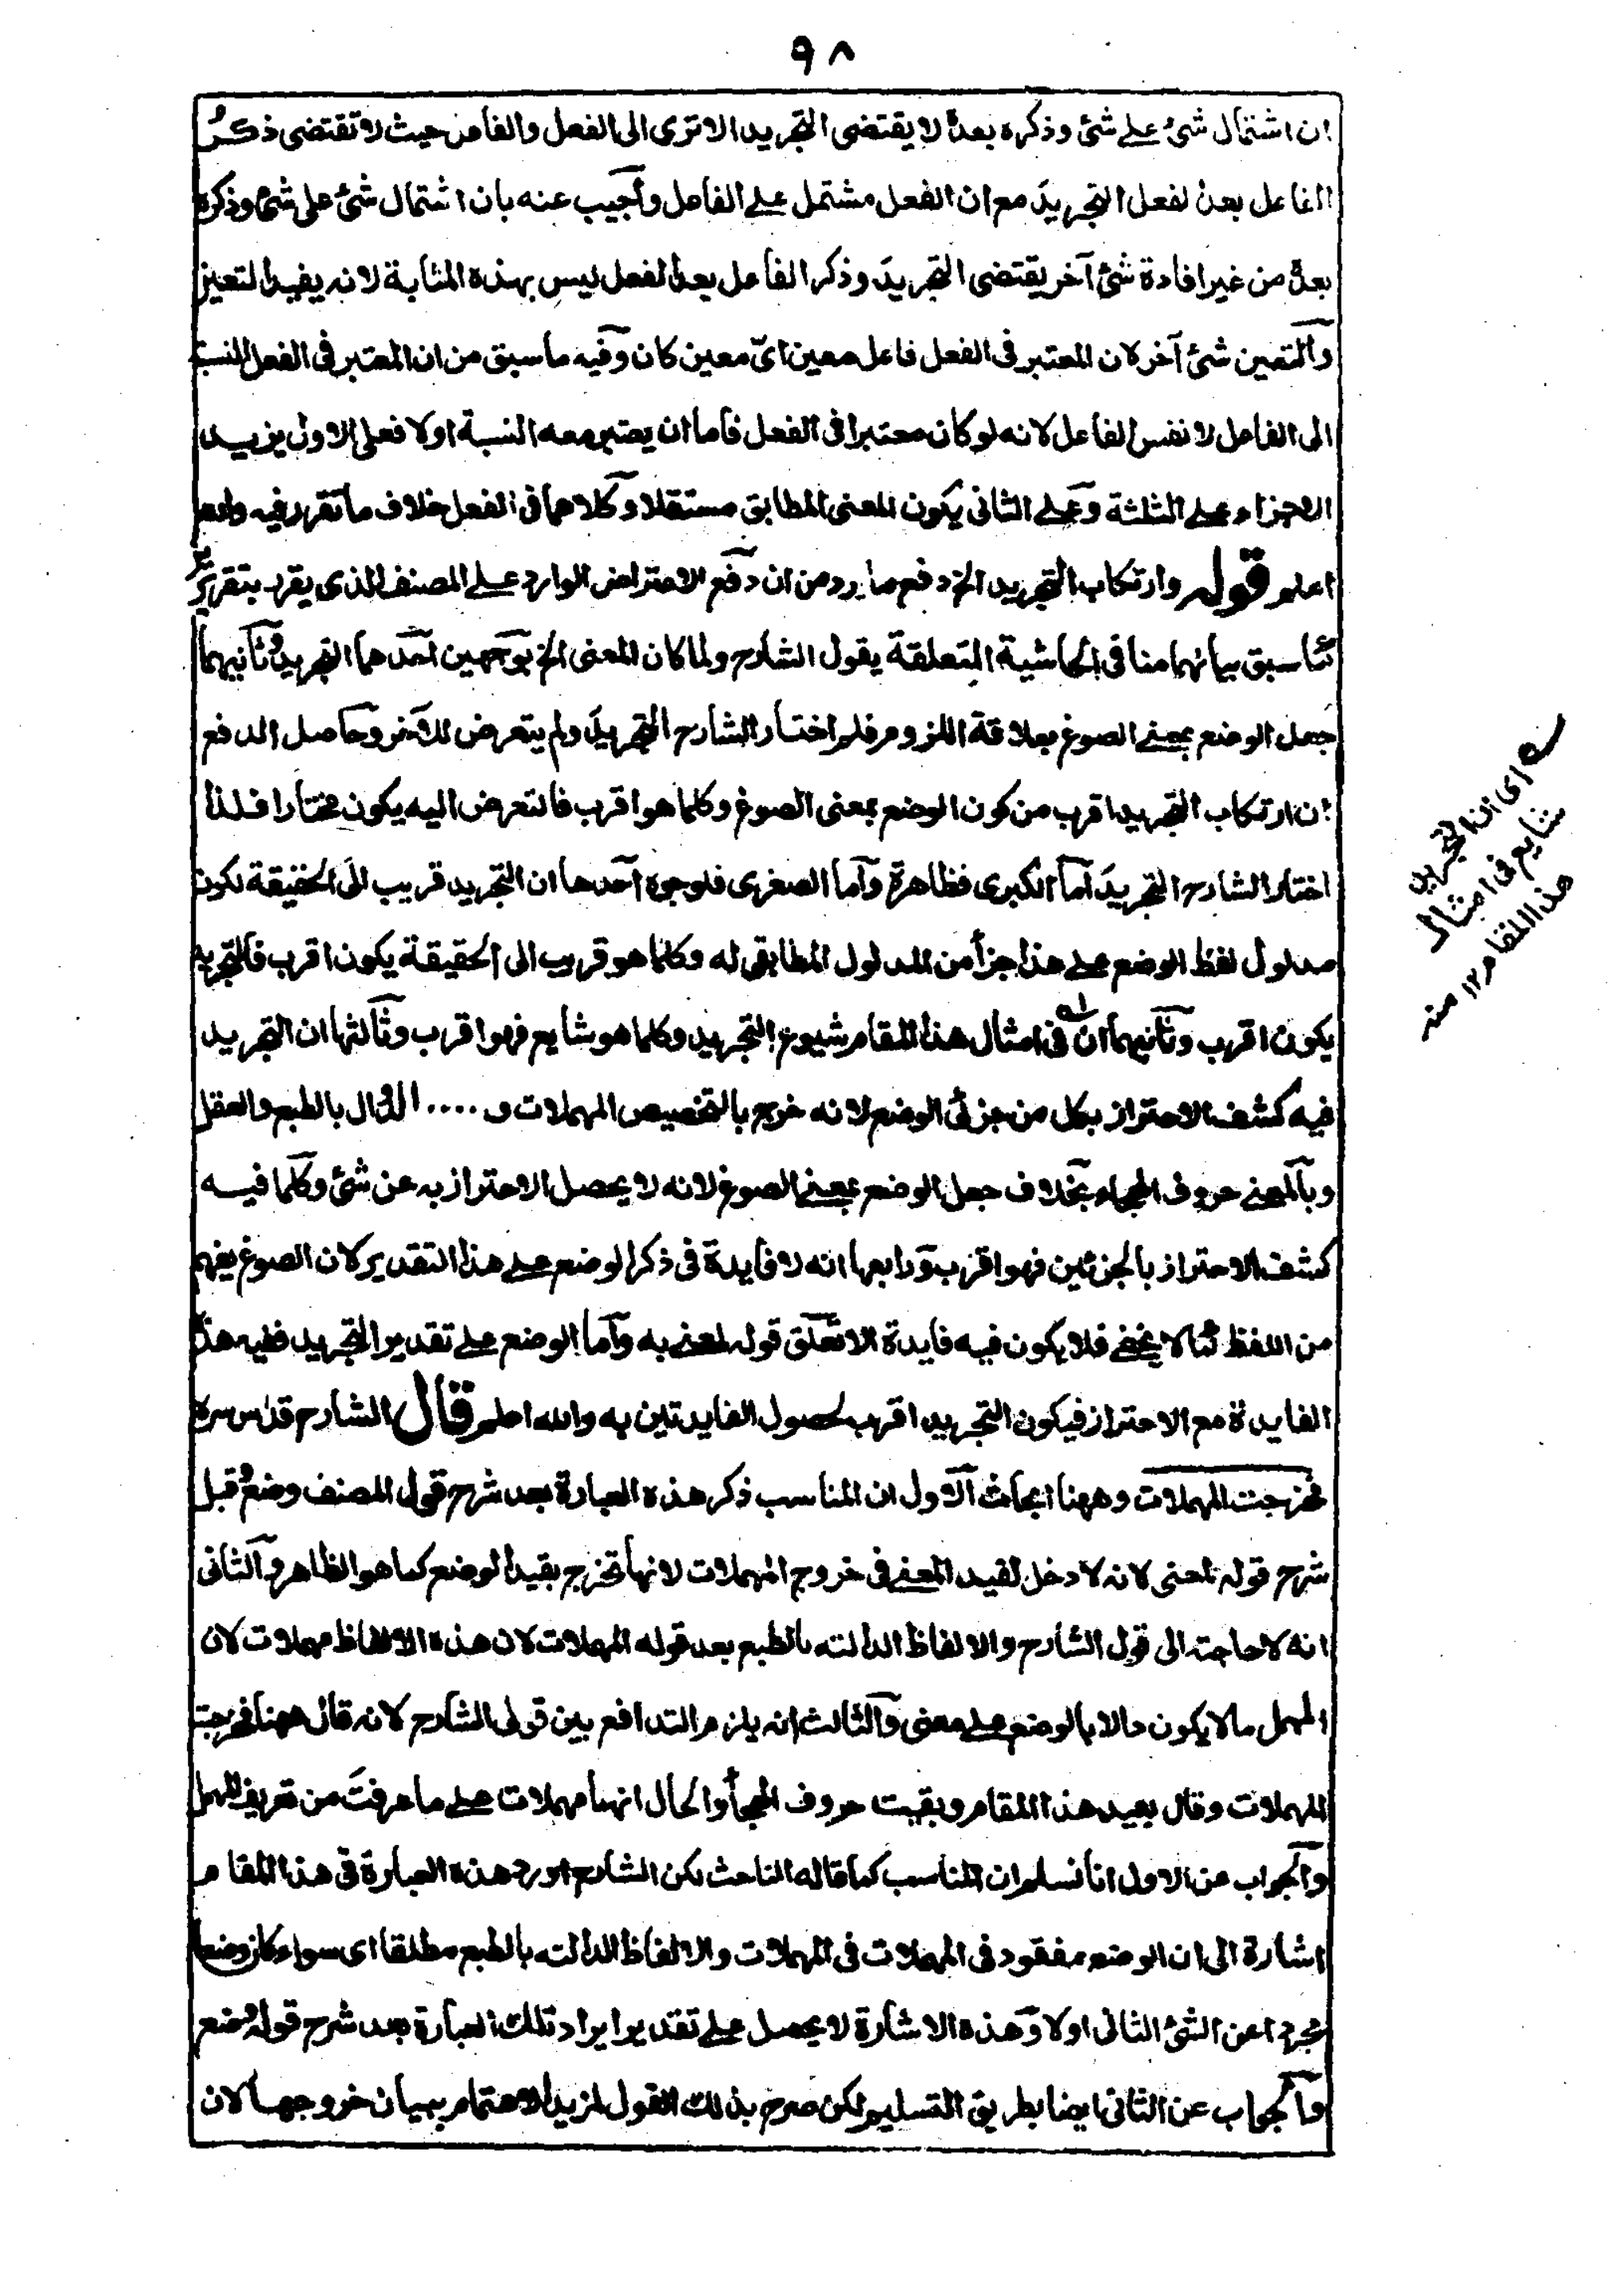 ٩٨
ان اشتمال شئ علے شئ وذكره بعدهٗ لا يقتضى التجريد الا ترى الى الفعل والفاعل حيث لا تقتضى ذكرُ
الفاعل بعد الفعل التجريدَ مع ان الفعل مشتمل علے الفاعل وأجيب عنه بان اشتمال شئ على شئ وذكره
بعدهٗ من غير افادة شئ آخر يقتضى التجريدَ وذكر الفاعل بعد الفعل ليس بهذه المثابة لانه يفيد التعين
والتعين شئ آخر لان المعتبر فى الفعل فاعل معين اىّ معين كان وفيه ما سبق من ان المعتبر فى الفعل النسبة
الى الفاعل لا نفس الفاعل لانه لو كان معتبرا فى الفعل فاما ان يعتبر معه النسبة اولا فعلى الاول يزيد
الاجزاء علے الثلثة وعلے الثانى يكون المعنى المطابقى مستقلا وكلاهما فى الفعل خلاف ما تقرر فيه والله
اعلم قوله وارتكاب التجريد الخ دفع ما يرد من ان دفع الاعتراض الوارد علے المصنف الذى يقرر بتقريرين
سبق بيانهما منا فى الحاشية المتعلقة بقول الشارح ولما كان المعنى الخ بوجهين احدهما التجريد وثانيهما
جعل الوضع بمعنے الصوغ بعلاقة اللزوم فلم اختار الشارح التجريدَ ولم يتعرض للآخر وحاصل الدفع
ان ارتكاب التجريد اقرب من كون الوضع بمعنى الصوغ وكلما هو اقرب فالتعرض اليه يكون مختارا فلذا
اختار الشارح التجريدَ اما الكبرى فظاهرة واما الصغرى فلوجوه احدها ان التجريد قريب الى الحقيقة لكون
مدلول لفظ الوضع علے هذا جزأ من المدلول المطابقى له وكلما هو قريب الى الحقيقة يكون اقرب فالتجريد
يكون اقرب وثانيهما ان فى امثال هذا المقام شيوع التجريد وكلما هو شايع فهو اقرب وثالثها ان التجريد
فيه كشف الاحتراز بكل من جزئى الوضع لانه خرج بالتخصيص المهملات و .... الدال بالطبع والعقل
وبالمعنے حروف الهجاء بخلاف جعل الوضع بمعنے الصوغ لانه لا يحصل الاحتراز به عن شئ وكلما فيه
كشف الاحتراز بالجزئين فهو اقرب ورابعها انه لا فايدة فى ذكر الوضع علے هذا التقدير لان الصوغ يفهم
من اللفظ كما لا يخفے فلا يكون فيه فايدة الا تعلق قوله لمعنے به واما الوضع علے تقدير التجريد ففيه هذه
الفايدة مع الاحتراز فيكون التجريد اقرب لحصول الفايدتين به والله اعلم قال الشارح قدس سره
فخرجت المهملات وههنا ابحاث الاول ان المناسب ذكر هذه العبارة بعد شرح قول المصنف وضعُ قبل
شرح قوله لمعنى لانه لا دخل لقيد المعنے فى خروج المهملات لانها تخرج بقيد الوضع كما هو الظاهر والثانى
انه لا حاجة الى قول الشارح والالفاظ الدالته بالطبع بعد قوله المهملات لان هذه الالفاظ مهملات لان
المهمل ما لا يكون دالا بالوضع علے معنى والثالث انه يلزم التدافع بين قولى الشارح لانه قال ههنا فخرجت
المهملات وقال بعيد هذا المقام وبقيت حروف الهجأ والحال انها مهملات علے ما عرفتَ من تعريف المهمل
والجواب عن الاول انا نسلم ان المناسب كما قاله الباحث لكن الشارح اورد هذه العبارة فى هذا المقام
اشارة الى ان الوضع مفقود فى المهملات فى المهملات والالفاظ الدالته بالطبع مطلقا اى سواء كان وضعا
مجردا عن الشئ الثانى اولا وهذه الاشارة لا يحصل علے تقدير ايراد تلك العبارة بعد شرح قوله وضع
والجواب عن الثانى ايضا بطريق التسليم لكن صرح بذلك القول لمزيد الاهتمام ببيان خروجها لان
اى ان التجريد
شايع فى امثال
هذا المقام ١٢ منه